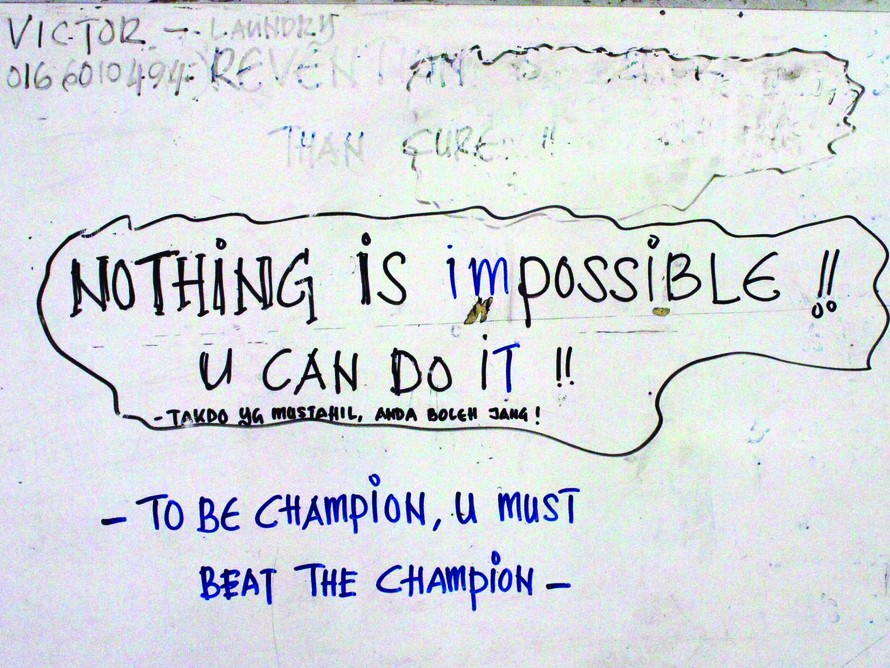 VICTOR - LAUNDRY
016 6010 494 REVENTION IS
THAN CURE !!
NOTHiNG iS imPOSSiBLE !!
U CAN DO iT !!
- TAKDO YG MUSTAHIL, ANDA BOLEH JANG !
- TO BE CHAMPiON, U MUST
BEAT THE CHAMPiON -